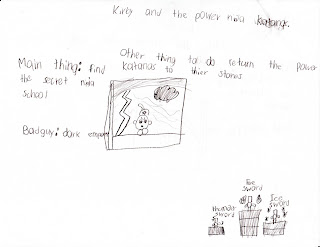 Kirby and the power nija katanas.
Other thing to do return the power
katanas to thier stones
Main thing: find
the secret nija
school
Badguy: dark
Fire
sword
Thunder
sword
Ice
sword